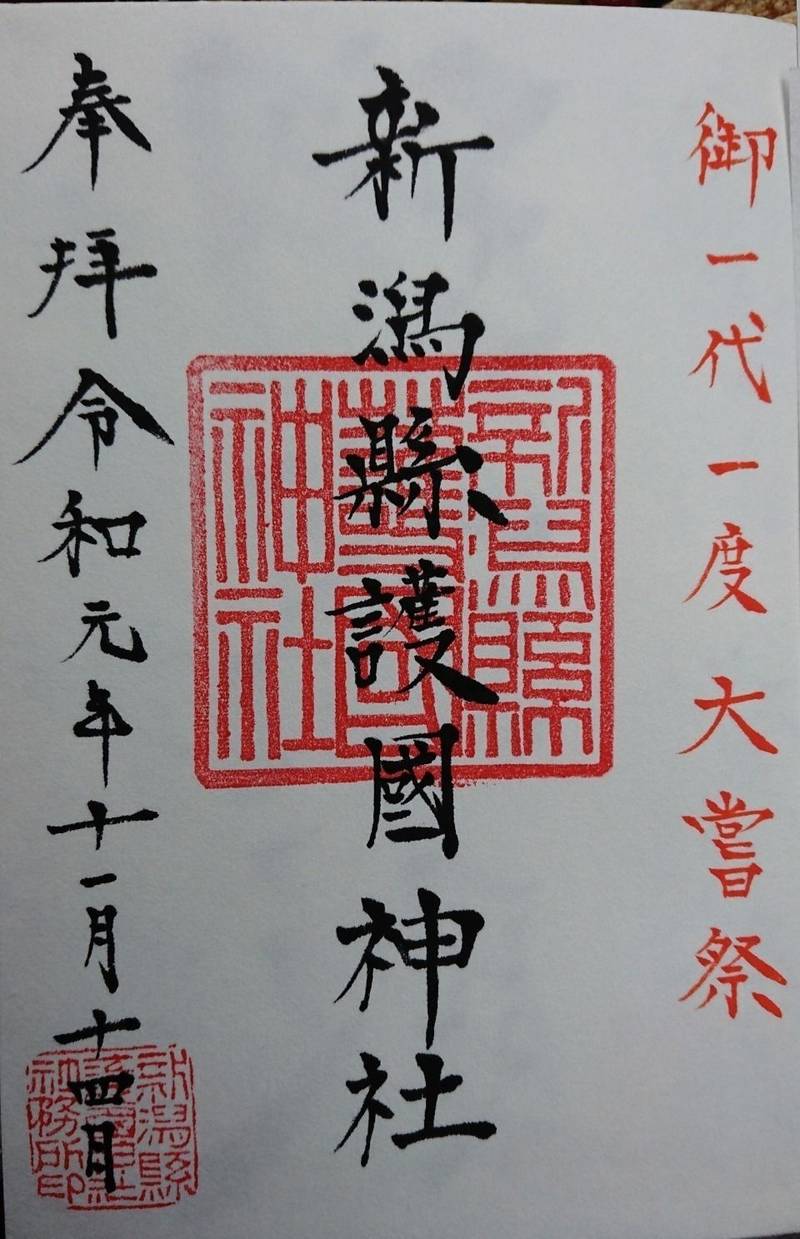 御一代一度大嘗祭
新潟縣護國神社
新潟縣
護國
神社
奉拝令和元年十一月十四日
新潟縣
護國神社
社務所印